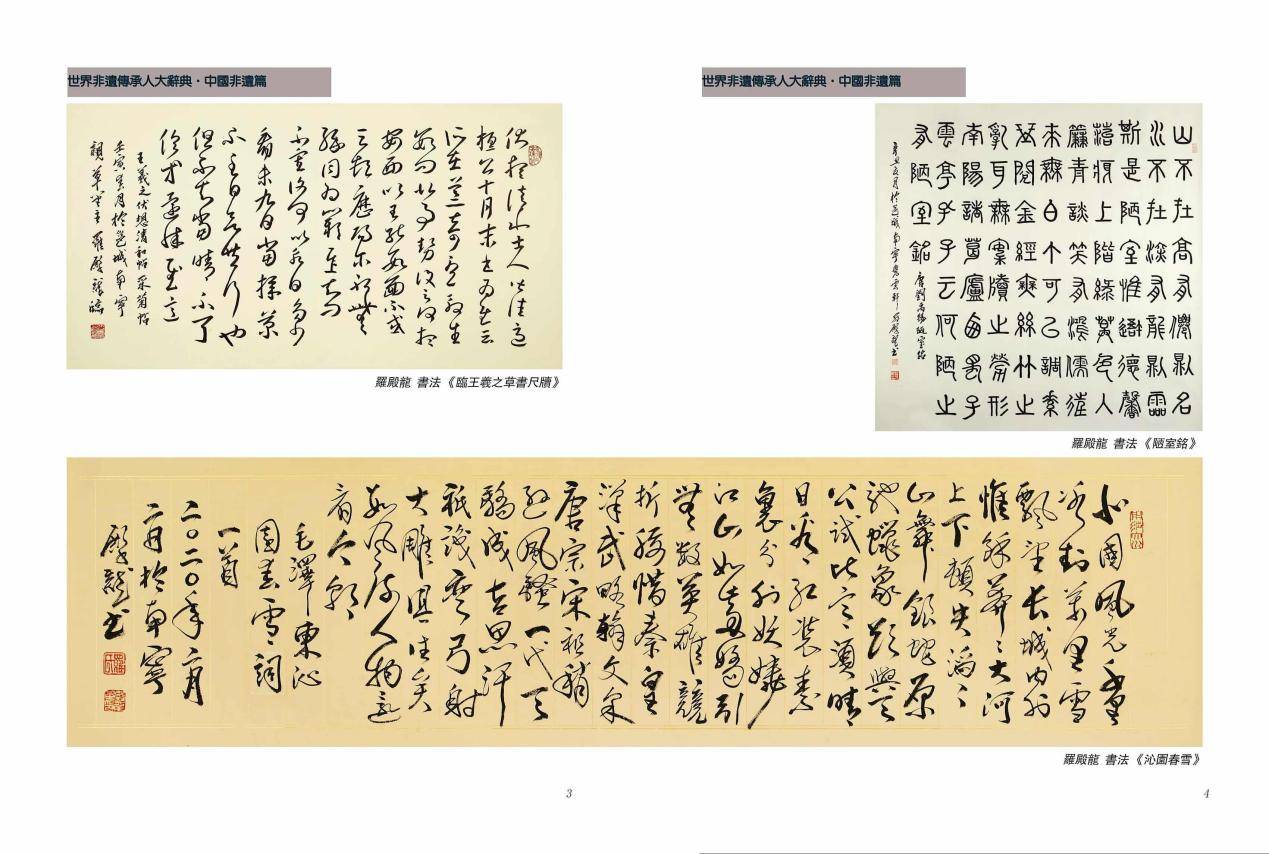 世界非遺傳承人大辭典·中國非遺篇
伏想清和士人皆佳適
桓公十月末書為慰云
所在荒甚可憂殷生
數問北事勢復云何想
安西以至能數面不或
云頓歷陽爾耶無
緣同為歎遲知問
不審復何以永日多少
看未九日當採菊
不至日欲共行也
但不知當晴不
王羲之伏想清和帖采菊帖
壬寅月於邕城南寧
草堂主羅殿龍臨
羅殿龍 書法《臨王羲之草書尺牘》
世界非遺傳承人大辭典·中國非遺篇
山不在高有僊則名
水不在深有龍則靈
斯是陋室惟吾德馨
苔痕上階綠草色入
簾青談笑有鴻儒往
來無白丁可以調素
琴閱金經無絲竹之
亂耳無案牘之勞形
南陽諸葛廬西蜀子
雲亭孔子云何陋之
有陋室銘
唐劉禹錫陋室銘
羅殿龍 書法《陋室銘》
北國風光千里
冰封萬里雪
飄望長城內外
惟餘莽莽大河
上下頓失滔滔
山舞銀蛇原
馳蠟象欲與天
公試比高須晴
日看紅裝素
裹分外妖嬈
江山如此多嬌引
無數英雄競
折腰惜秦皇
漢武略輸文采
唐宗宋祖稍
遜風騷一代天
驕成吉思汗
衹識彎弓射
大雕俱往矣
數風流人物還
看今朝
毛澤東沁
園春雪詞
一首
二〇二〇年
二月於南寧
殿龍書
羅殿龍 書法《沁園春雪》
3
4